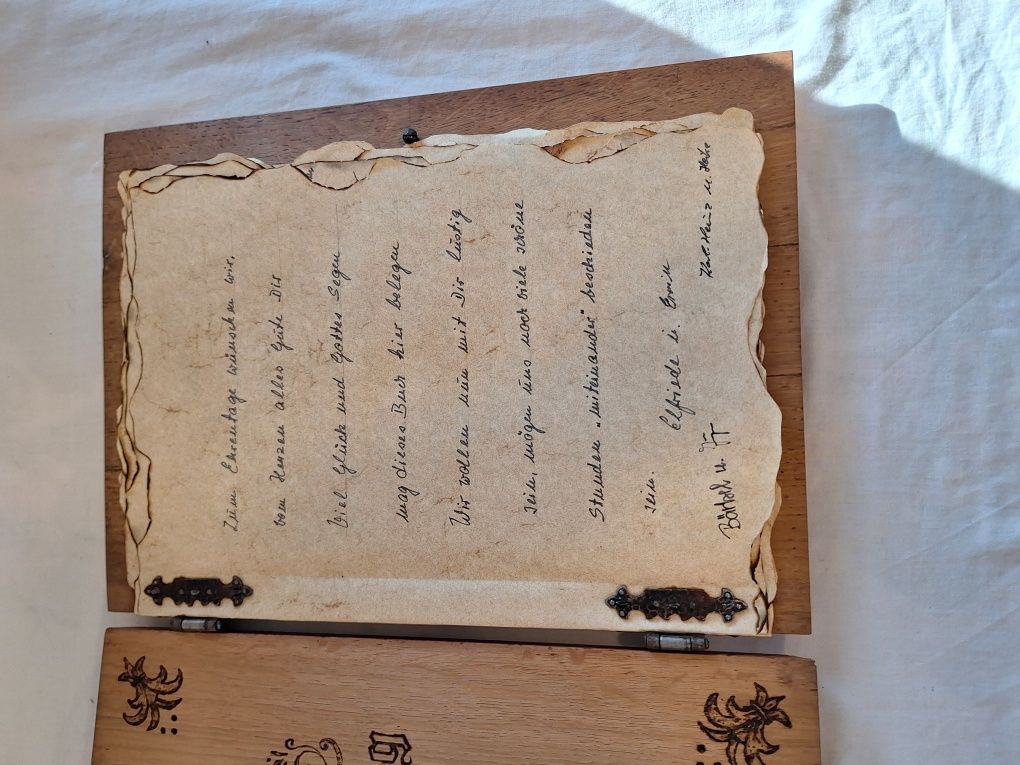 Zum Ehrentage wünschen wir,
vom Herzen alles Gute Dir
Viel Glück und Gottes Segen
mag dieses Buch hier belegen
Wir wollen nun mit Dir lustig
sein, mögen uns noch viele schöne
Stunden „miteinander" beschieden
sein.
Elfriede u. Erwin
u.
Karl Heinz u. Heike